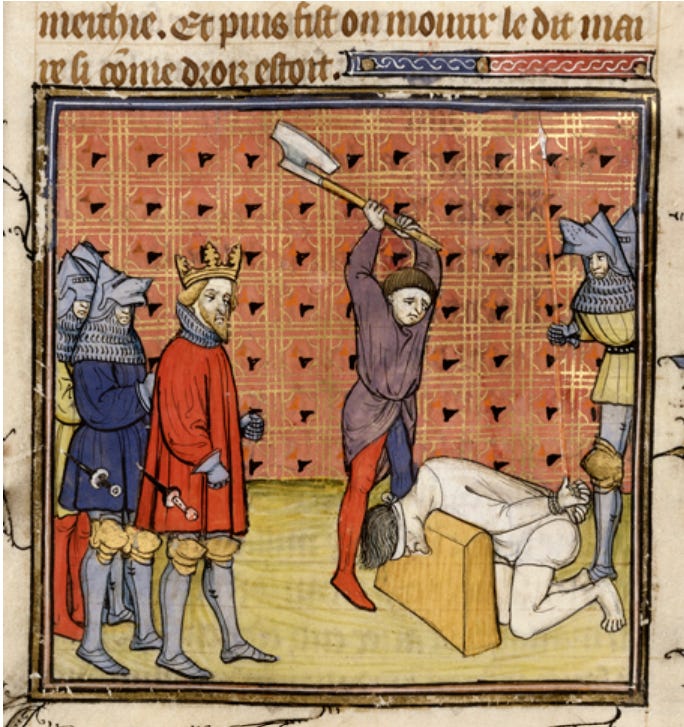 Et puis fist on mourir le dit mai
re si cõme droiz estoit.